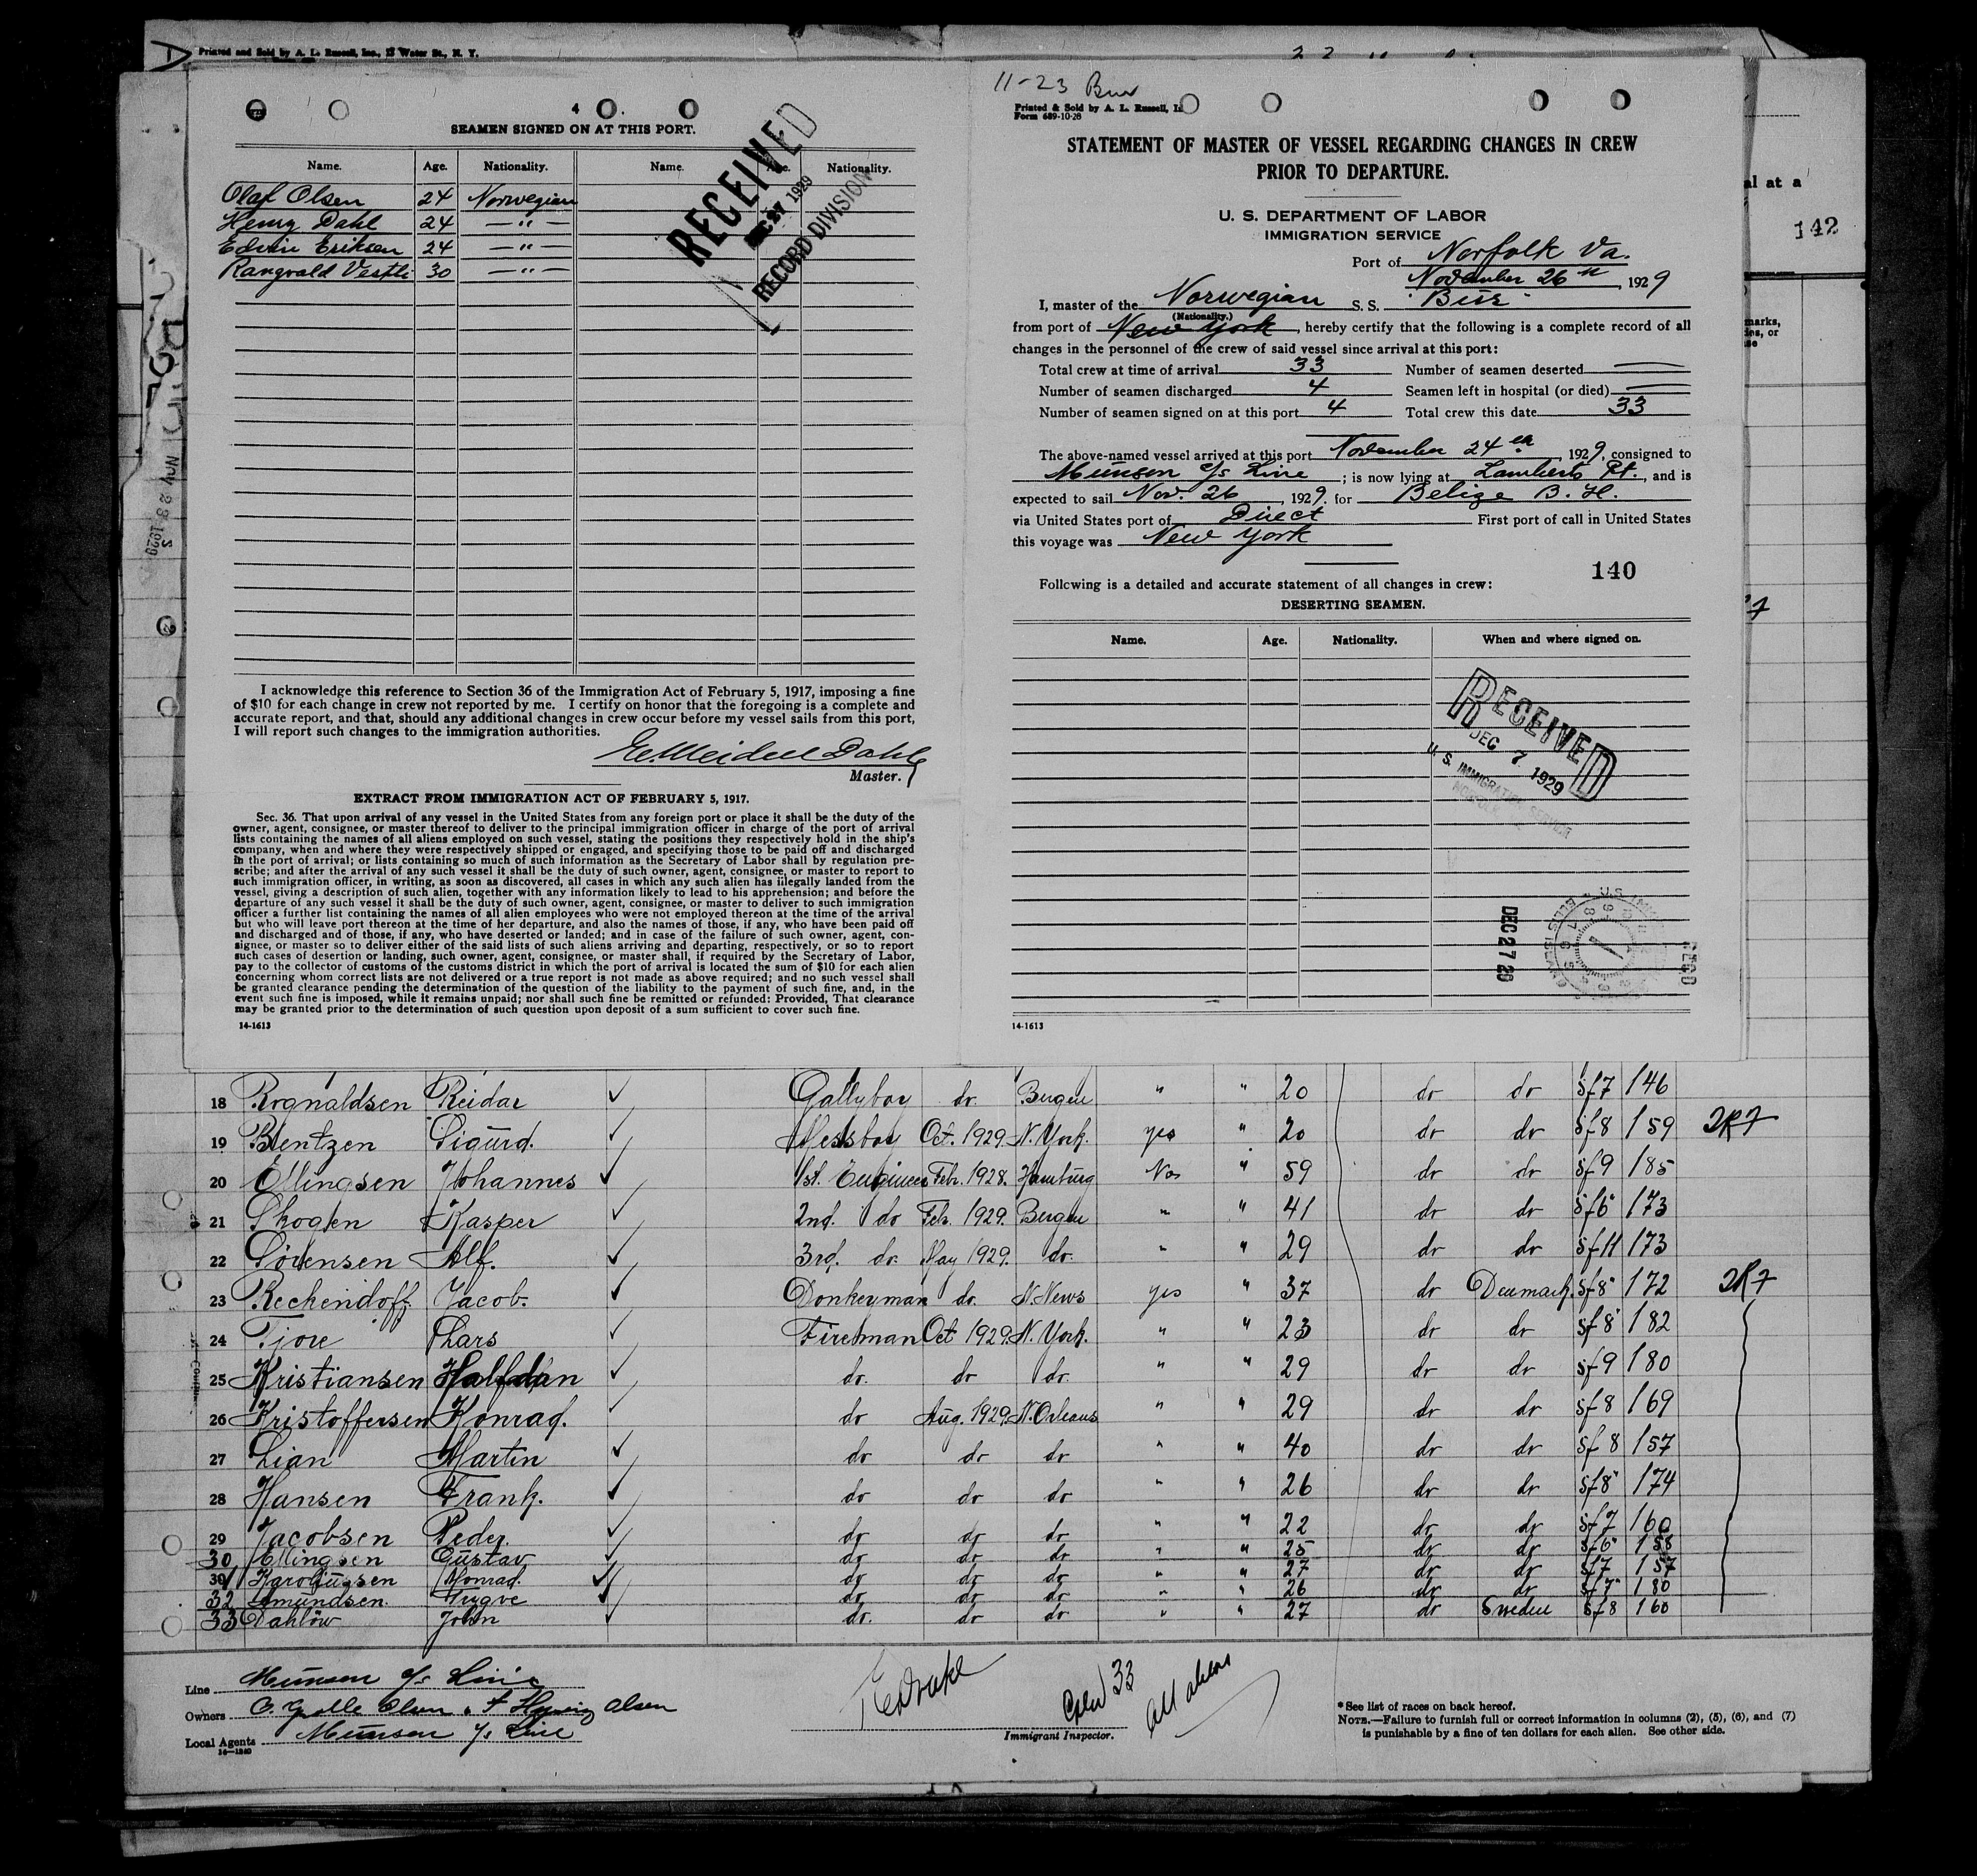 Printed and Sold by A. L. Russell, Inc., 13 Water St., N. Y.
4
SEAMEN SIGNED ON AT THIS PORT.
Name. Age. Nationality. Name. Age. Nationality.
Olaf Olsen 24 Norwegian
Henry Dahl 24 — " —
Edvin Eriksen 24 — " —
Rangvald Vestli 30 — " —
RECEIVED
DEC 27 1929
RECORD DIVISION
I acknowledge this reference to Section 36 of the Immigration Act of February 5, 1917, imposing a fine
of $10 for each change in crew not reported by me. I certify on honor that the foregoing is a complete and
accurate report, and that, should any additional changes in crew occur before my vessel sails from this port,
I will report such changes to the immigration authorities.
Meidell Dahl
Master.
EXTRACT FROM IMMIGRATION ACT OF FEBRUARY 5, 1917.
Sec. 36. That upon arrival of any vessel in the United States from any foreign port or place it shall be the duty of the
owner, agent, consignee, or master thereof to deliver to the principal immigration officer in charge of the port of arrival
lists containing the names of all aliens employed on such vessel, stating the positions they respectively hold in the ship's
company, when and where they were respectively shipped or engaged, and specifying those to be paid off and discharged
in the port of arrival; or lists containing so much of such information as the Secretary of Labor shall by regulation pre-
scribe; and after the arrival of any such vessel it shall be the duty of such owner, agent, consignee, or master to report to
such immigration officer, in writing, as soon as discovered, all cases in which any such alien has illegally landed from the
vessel, giving a description of such alien, together with any information likely to lead to his apprehension; and before the
departure of any such vessel it shall be the duty of such owner, agent, consignee, or master to deliver to such immigration
officer a further list containing the names of all alien employees who were not employed thereon at the time of the arrival
but who will leave port thereon at the time of her departure, and also the names of those, if any, who have been paid off
and discharged and of those, if any, who have deserted or landed; and in case of the failure of such owner, agent, con-
signee, or master so to deliver either of the said lists of such aliens arriving and departing, respectively, or so to report
such cases of desertion or landing, such owner, agent, consignee, or master shall, if required by the Secretary of Labor,
pay to the collector of customs of the customs district in which the port of arrival is located the sum of $10 for each alien
concerning whom correct lists are not delivered or a true report is not made as above required; and no such vessel shall
be granted clearance pending the determination of the question of the liability to the payment of such fine, and, in the
event such fine is imposed, while it remains unpaid; nor shall such fine be remitted or refunded: Provided, That clearance
may be granted prior to the determination of such question upon deposit of a sum sufficient to cover such fine.
14-1613
11-23
Printed & Sold by A. L. Russell, In
Form 689-10-28
STATEMENT OF MASTER OF VESSEL REGARDING CHANGES IN CREW
PRIOR TO DEPARTURE.
U. S. DEPARTMENT OF LABOR
IMMIGRATION SERVICE
Port of Norfolk Va.
November 26th, 1929
I, master of the Norwegian S. S. "Bur"
(Nationality.)
from port of New York, hereby certify that the following is a complete record of all
changes in the personnel of the crew of said vessel since arrival at this port:
Total crew at time of arrival 33 Number of seamen deserted —
Number of seamen discharged 4 Seamen left in hospital (or died) —
Number of seamen signed on at this port 4 Total crew this date 33
The above-named vessel arrived at this port November 24th, 1929, consigned to
Munson S/S Line; is now lying at Lamberts Pt., and is
expected to sail Nov. 26, 1929. for Belize B. H.
via United States port of Direct First port of call in United States
this voyage was New York
140
Following is a detailed and accurate statement of all changes in crew:
DESERTING SEAMEN.
Name. Age. Nationality. When and where signed on.
RECEIVED
DEC 7 1929
U. S. IMMIGRATION SERVICE
NORFOLK
DEC 27 29
RECD
14-1613
al at a
142
marks,
18 Rognaldsen Reidar ✓ Galleyboy do. Bergen " " 20 do do 5f7 146
19 Bentzen Sigurd. ✓ Messboy Oct. 1929. N. York. yes " 20 do do 5f8 159 2R7
20 Ellingsen Johannes ✓ 1st. Engineer Febr. 1928. Hamburg No " 59 do do 5f9 185
21 Skogen Kasper ✓ 2nd. do Feb. 1929. Bergen " " 41 do do 5f6 173
22 Sörensen Alf. ✓ 3rd. do. May 1929. do. " " 29 do do 5f11 173
23 Reckendoff Jacob. ✓ Donkeyman do. N. News yes " 37 do Denmark. 5f8 172 2R7
24 Tjore Lars ✓ Fireman Oct 1929. N. York. " " 23 do do 5f8 182
25 Kristiansen Halfdan ✓ do. do do. " " 29 do do 5f9 180
26 Kristoffersen Konrad. ✓ do Aug. 1929. N. Orleans " " 29 do do 5f8 169
27 Lian Martin ✓ do do do " " 40 do do 5f8 157
28 Hansen Frank. ✓ do do do " " 26 do do 5f8 174
29 Jacobsen Peder. ✓ do do do " " 22 do do 5f7 160
30 Ellingsen Gustav ✓ do do do " " 25 do do 5f6 158
31 Karoliussen Konrad. ✓ do do do " " 27 do do 5f7 157
32 Amundsen Trygve ✓ do do do " " 26 do do 5f7 180
33 Dahlöw John ✓ do. do do " " 27 do Sweden 5f8 160
Line Munson S/S Line
Owners O. Grolle Olsen & F Hysing Olsen
Local Agents Munson S/S Line
14—1240
Crew 33
All aliens
Immigrant Inspector.
* See list of races on back hereof.
NOTE.—Failure to furnish full or correct information in columns (2), (5), (6), and (7)
is punishable by a fine of ten dollars for each alien. See other side.